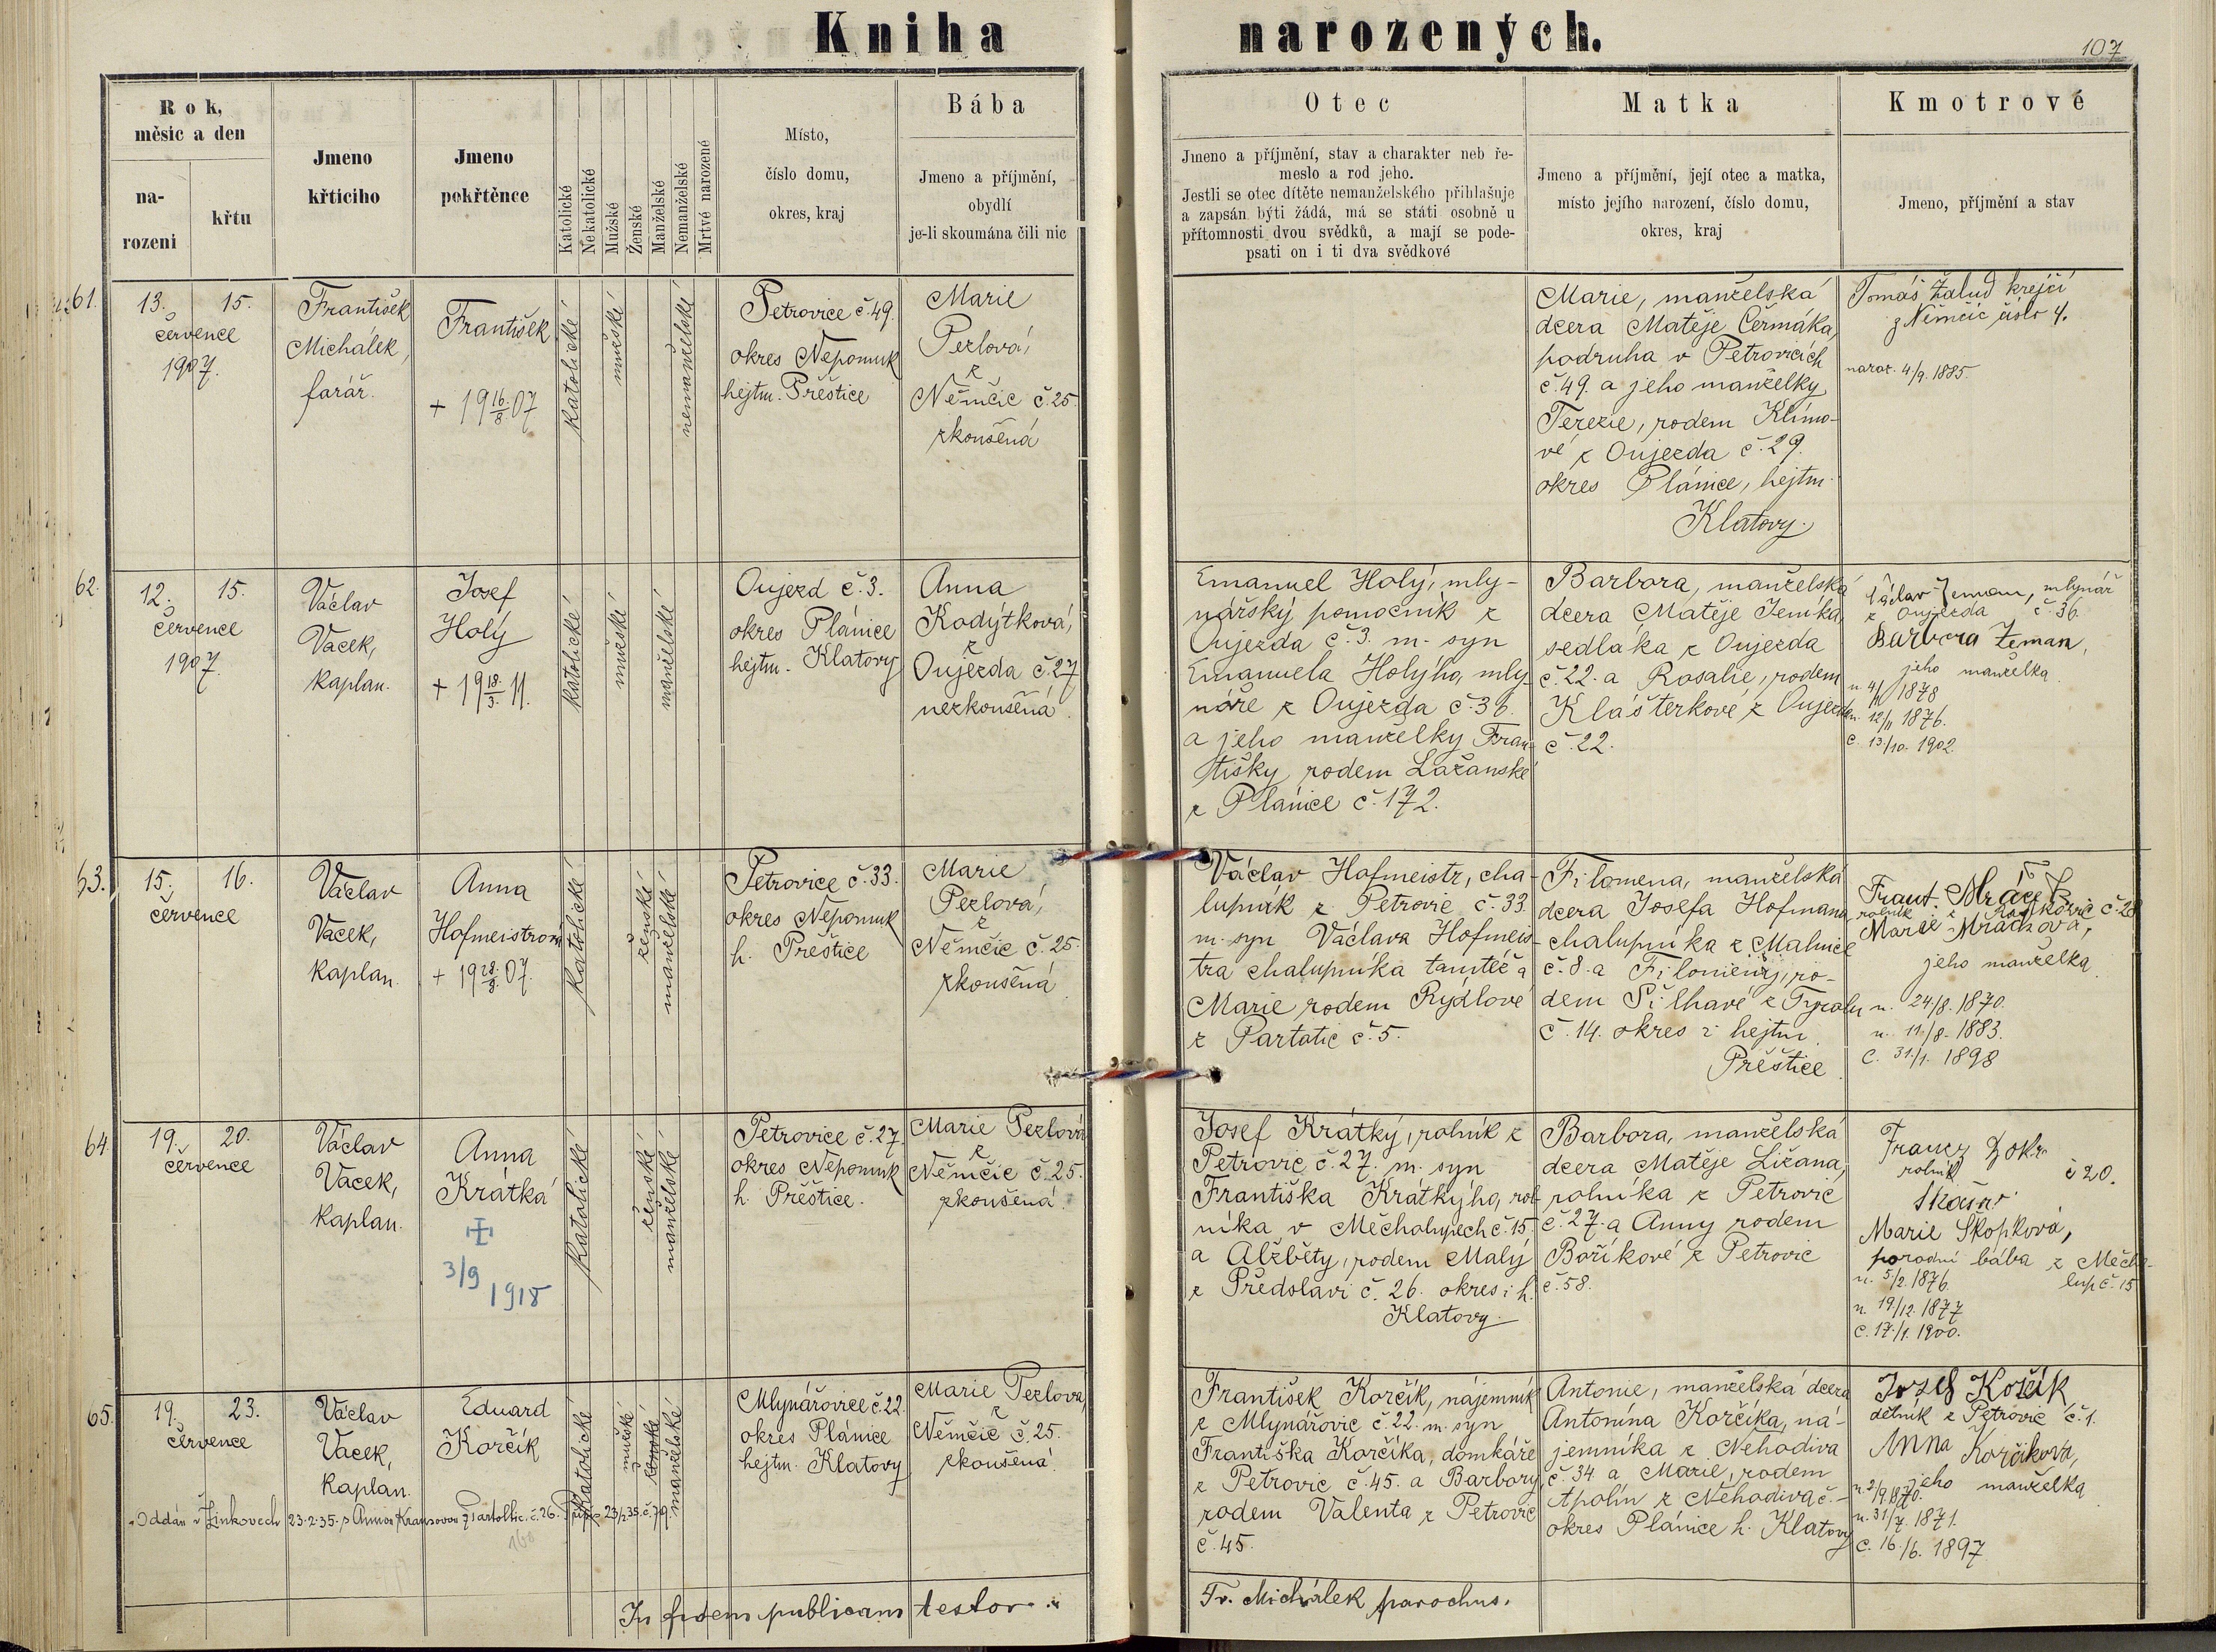 Kniha narozených.
107
Rok,
měsíc a den
na-
rozeni
křtu
Jmeno
křticiho
Jmeno
pokřtěnce
Katolické
Nekatolické
Mužské
Ženské
Manželské
Nemanželské
Mrtvé narozené
Místo,
číslo domu,
okres, kraj
Bába
Jmeno a příjmění,
obydlí
je-li skoumána čili nic
Otec
Jmeno a příjmění, stav a charakter neb ře-
meslo a rod jeho.
Jestli se otec dítěte nemanželského přihlašuje
a zapsán býti žádá, má se státi osobně u
přítomnosti dvou svědků, a mají se pode-
psati on i ti dva svědkové
Matka
Jmeno a příjmění, její otec a matka,
místo jejího narození, číslo domu,
okres, kraj
Kmotrové
Jmeno, příjmění a stav
61.
13. 15.
července
1907.
František
Michálek,
farář.
František
+ 19 16./8 07
katolické
mužské
nemanželské
Petrovice č. 49.
okres Nepomuk
hejtm. Přeštice
Marie
Pezlová,
z
Němčic č. 25.
zkoušená
Marie, manželská
dcera Matěje Čermáka,
podruha v Petrovicích
č. 49. a jeho manželky
Terezie, rodem Klimo-
vé z Oujezda č. 29.
okres Plánice, hejtm.
Klatovy.
Tomáš Žalud krejčí
z Němčic číslo 4.
naroz. 4/9. 1885.
62.
12. 15.
července
1907.
Václav
Vacek,
kaplan.
Josef
Holý
+ 19 18./3. 11.
katolické
mužské
manželské
Oujezd č. 3.
okres Plánice
hejtm. Klatovy
Anna
Kodýtková,
z
Oujezda č. 27
nezkoušená.
Emanuel Holý, mly-
nářský pomocník z
Oujezda č. 3. m. syn
Emanuela Holýho, mly-
náře z Oujezda č. 36.
a jeho manželky Fran-
tišky, rodem Lažanské
z Plánice č. 172.
Barbora, manželská
dcera Matěje Jeníka,
sedláka z Oujezda
č. 22. a Rosalie, rodem
Klášterkové z Oujezda
č. 22.
Václav Zeman, mlynář
z Oujezda č. 36.
Barbora Zeman,
jeho manželka.
n. 4/11 1878
n. 12/11 1876.
c. 13/10. 1902.
63.
15. 16.
července
Václav
Vacek,
kaplan.
Anna
Hofmeistrová
+ 19 28./8. 07.
katolické
ženské
manželské
Petrovice č. 33.
okres Nepomuk
h. Přeštice
Marie
Pezlová,
z
Němčic č. 25.
zkoušená
Václav Hofmeistr, cha-
lupník z Petrovic č. 33.
m. syn Václava Hofmeis-
tra chalupníka tamtéž a
Marie, rodem Rýdlové
z Partotic č. 5.
Filomena, manželská
dcera Josefa Hofmana
chalupníka z Malince
č. 8. a Filomeny, ro-
dem Šilhavé z Tyrolu
č. 14. okres i hejtm.
Přeštice.
Frant. Mráček
rolník z č. 28
Marie Mráčková,
jeho manželka.
n. 24/8. 1870.
n. 11/8. 1883.
C. 31./1. 1898
64.
19. 20.
července
Václav
Vacek,
kaplan.
Anna
Krátká
3/9 1918
katolické
ženské
manželské
Petrovice č. 27.
okres Nepomuk
h. Přeštice.
Marie Pezlová
z
Němčic č. 25.
zkoušená.
Josef Krátký, rolník z
Petrovic č. 27. m. syn
Františka Krátkýho, rol-
níka v Měcholupech č. 15.
a Alžběty, rodem Malý
z Předslavi č. 26. okres i h.
Klatovy.
Barbora, manželská
dcera Matěje Ližana,
rolníka z Petrovic
č. 27. a Anny rodem
Boříkové z Petrovic
č. 58.
rolník
č 20.
Marie Škopková,
porodní bába z Měcho-
lup č. 15
n. 5/2. 1876.
n. 19./12. 1877
c. 17./1. 1900.
65.
19. 23.
července
Václav
Vacek,
kaplan.
Eduard
Korčík
katolické
mužské
ženské
manželské
Mlynářovice č. 22.
okres Plánice
hejtm. Klatovy
Marie Pezlová,
z
Němčic č. 25.
zkoušená.
František Korčík, nájemník
z Mlynářovic č. 22. m. syn
Františka Korčíka, domkáře
z Petrovic č. 45. a Barbory
rodem Valenta z Petrovic
č. 45.
Antonie, manželská dcera
Antonína Korčíka, ná-
jemníka z Nehodiva
č. 34 a Marie, rodem
Apolín z Nehodiva č. -
okres Plánice h. Klatovy
Josef Korčík
dělník z Petrovic č. 1.
Anna Korčíková,
jeho manželka
n. 2/9. 1870.
n. 31/7. 1871.
c. 16./6. 1897
Oddán v Žinkovech 23.2.35. s Annou Krausovou z Partoltic. č. 26. 23/2 35. č. 79.
160
In fidem publicam testor
Fr. Michálek parochus.